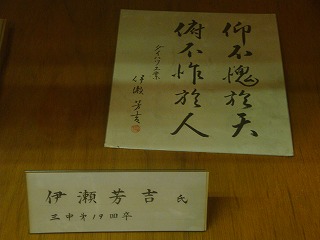 仰不愧於天
俯不怍於人
ダイハツ工業
伊瀬芳吉
伊瀬芳吉 氏
三中第19回卒